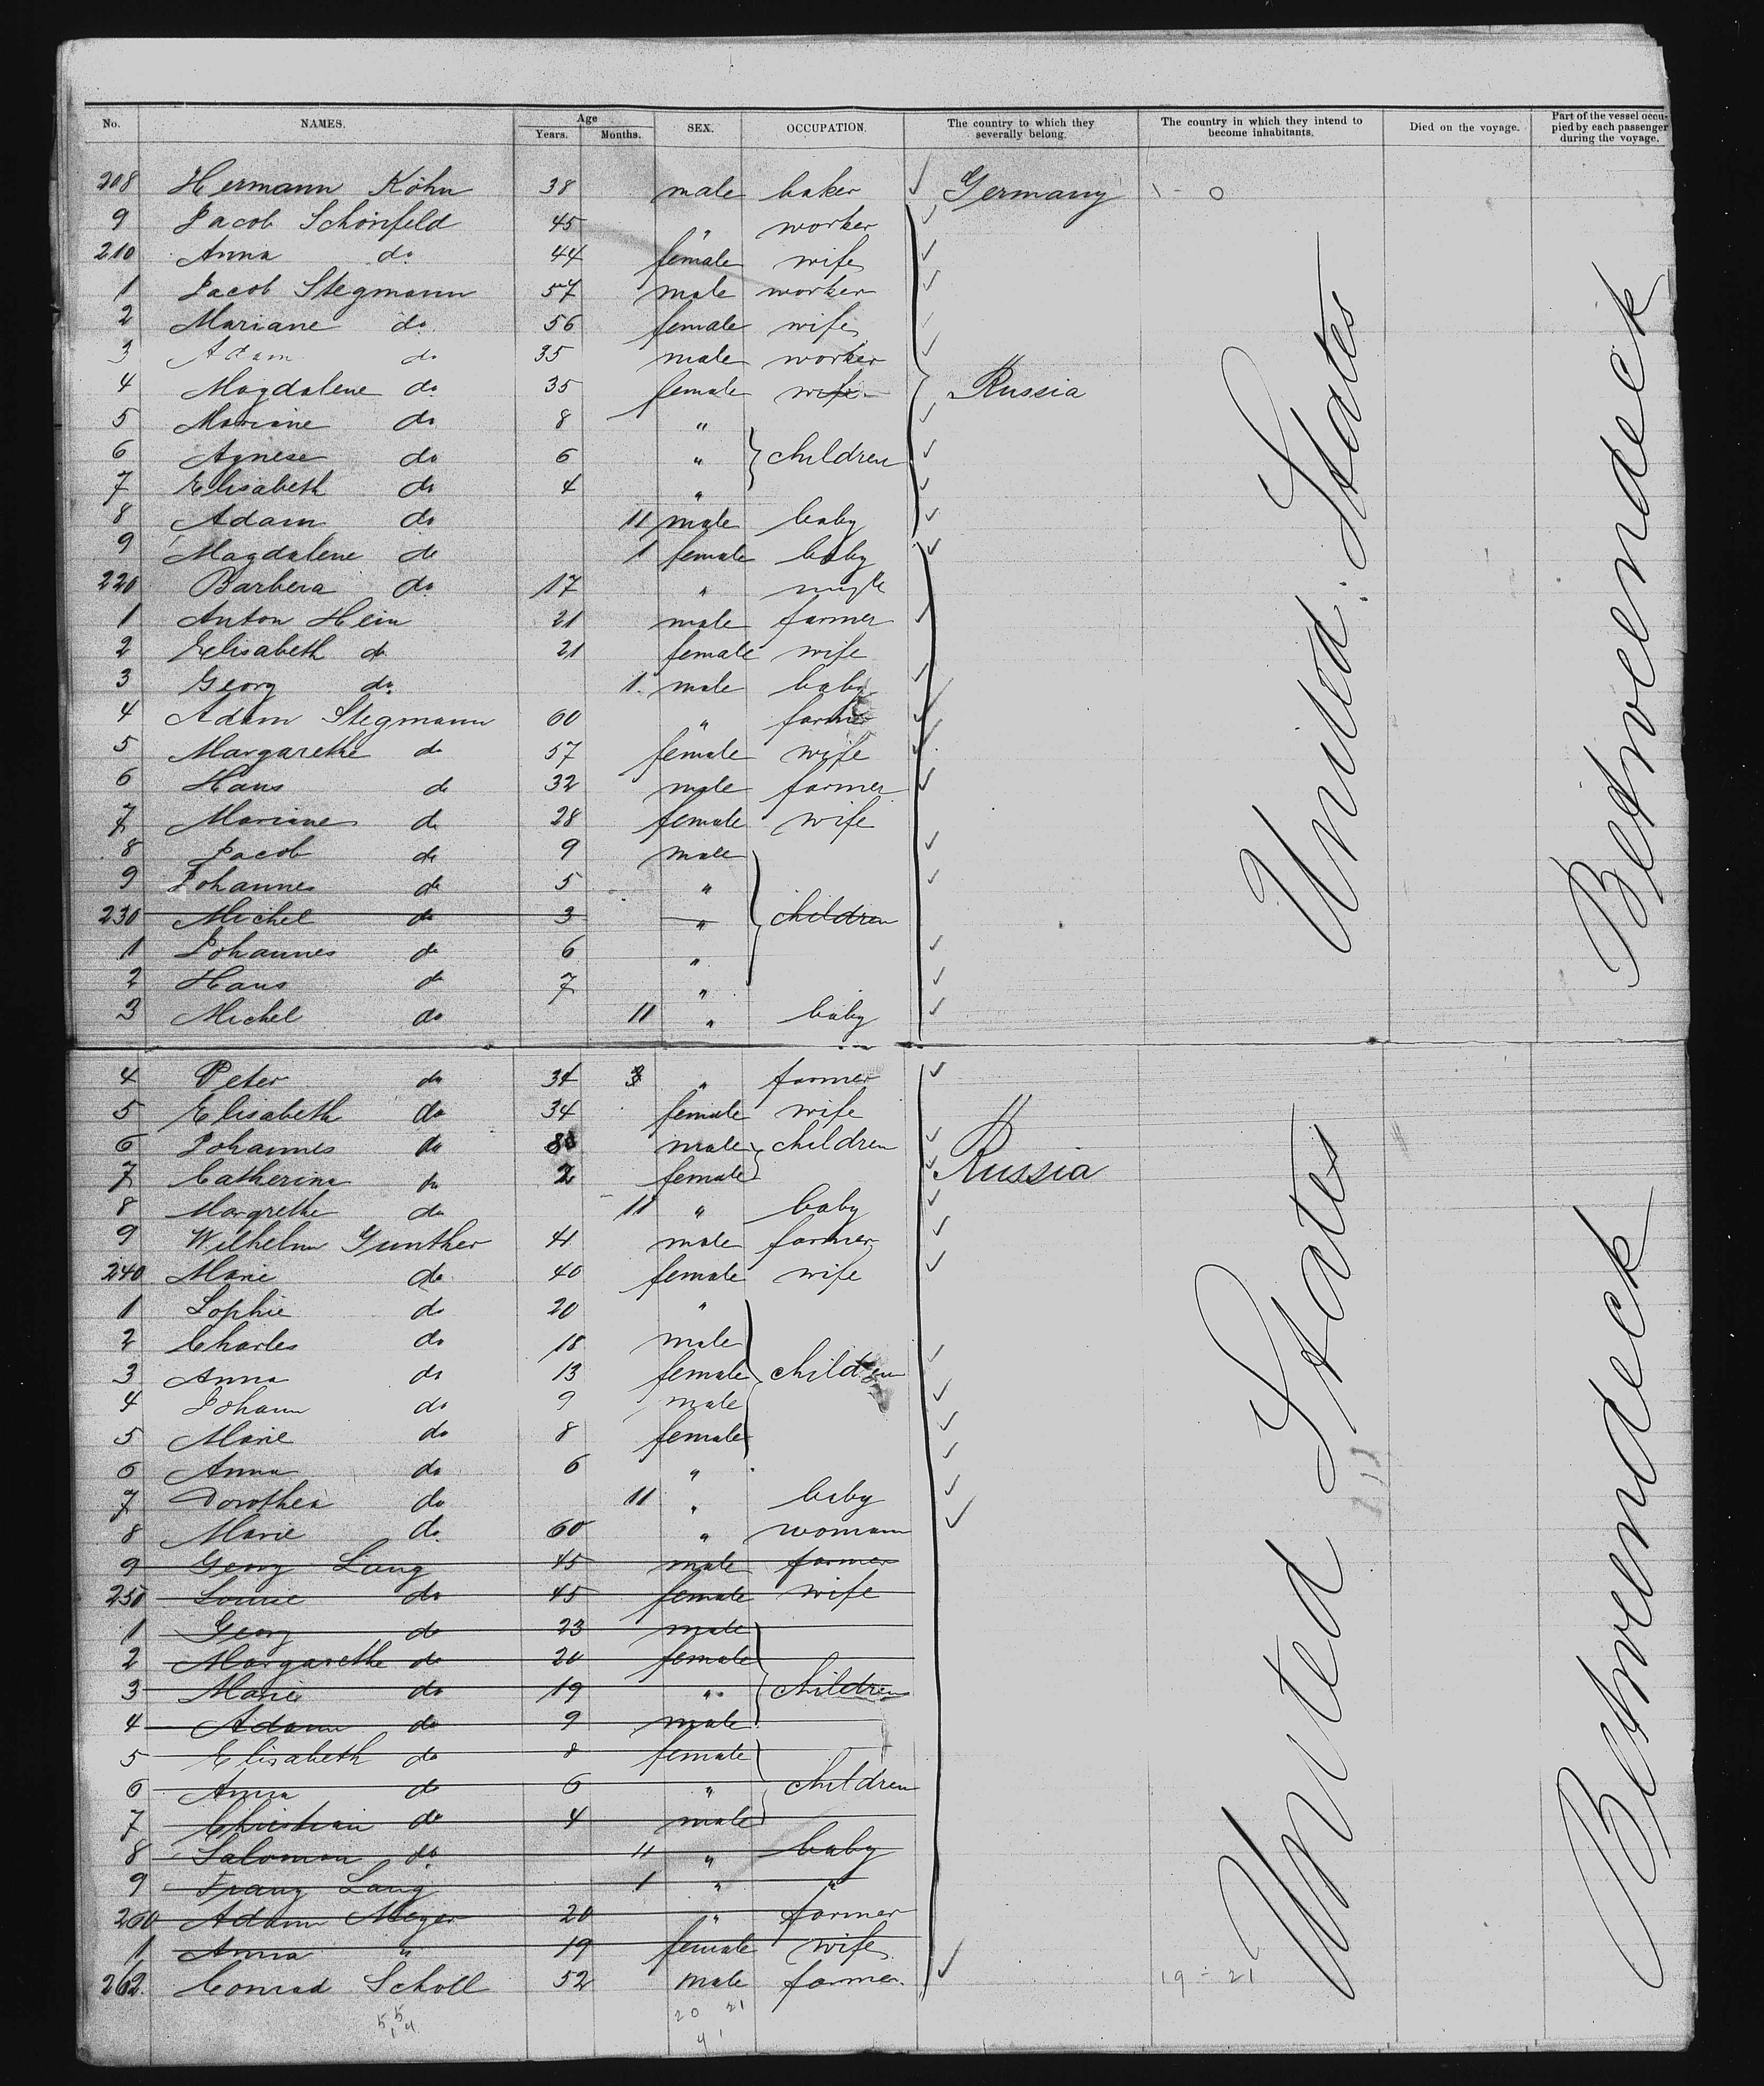 No. NAMES. Age Years. Months. SEX. OCCUPATION. The country to which they severally belong. The country in which they intend to become inhabitants. Died on the voyage. Part of the vessel occupied by each passenger during the voyage.
208 Hermann Köhn 38 male baker Germany 1 - 0
9 Jacob Schönfeld 45 " worker
210 Anna do 44 female wife
1 Jacob Stegmann 57 male worker
2 Mariane do 56 female wife
3 Adam do 35 male worker
4 Magdalene do 35 female wife Russia
5 Mariane do 8 "
6 Agnese do 6 " children
7 Elisabeth do 4 "
8 Adam do 11 male baby
9 Magdalene do 1 female baby
220 Barbera do 17 "
1 Anton Hein 21 male farmer
2 Elisabeth do 21 female wife
3 Georg do 1 male baby
4 Adam Stegmann 60 " farmer
5 Margarethe do 57 female wife
6 Hans do 32 male farmer
7 Mariane do 28 female wife
8 Jacob do 9 male
9 Johannes do 5 "
230 Michel do 3 " children
1 Johannes do 6 "
2 Hans do 7 "
3 Michel do 11 " baby
United States
Betweendeck
4 Peter do 34 " farmer
5 Elisabeth do 34 female wife
6 Johannes do male children
7 Catherina do 2 female Russia
8 Margrethe do 11 " baby
9 Wilhelm Gunther 41 male farmer
240 Marie do 40 female wife
1 Sophie do 20 "
2 Charles do 18 male
3 Anna do 13 female children
4 Johann do 9 male
5 Marie do 8 female
6 Anna do 6 "
7 Dorothea do 11 " baby
8 Marie do 60 " womann
9 Georg Lang 45 male farmer
250 Louise do 45 female wife
1 Georg do 23 male
2 Margarethe do 20 female
3 Marie do 19 " children
4 Adam do 9 male
5 Elisabeth do 8 female
6 Anna do 6 " children
7 Christian do 4 male
8 Salomon do 11 " baby
9 Franz Lang 1 " "
260 Adam Meyer 20 " farmer
1 Anna " 19 female wife
262. Conrad Scholl 52 male farmer. 19 - 21
United States
Betweendeck
20 21
41